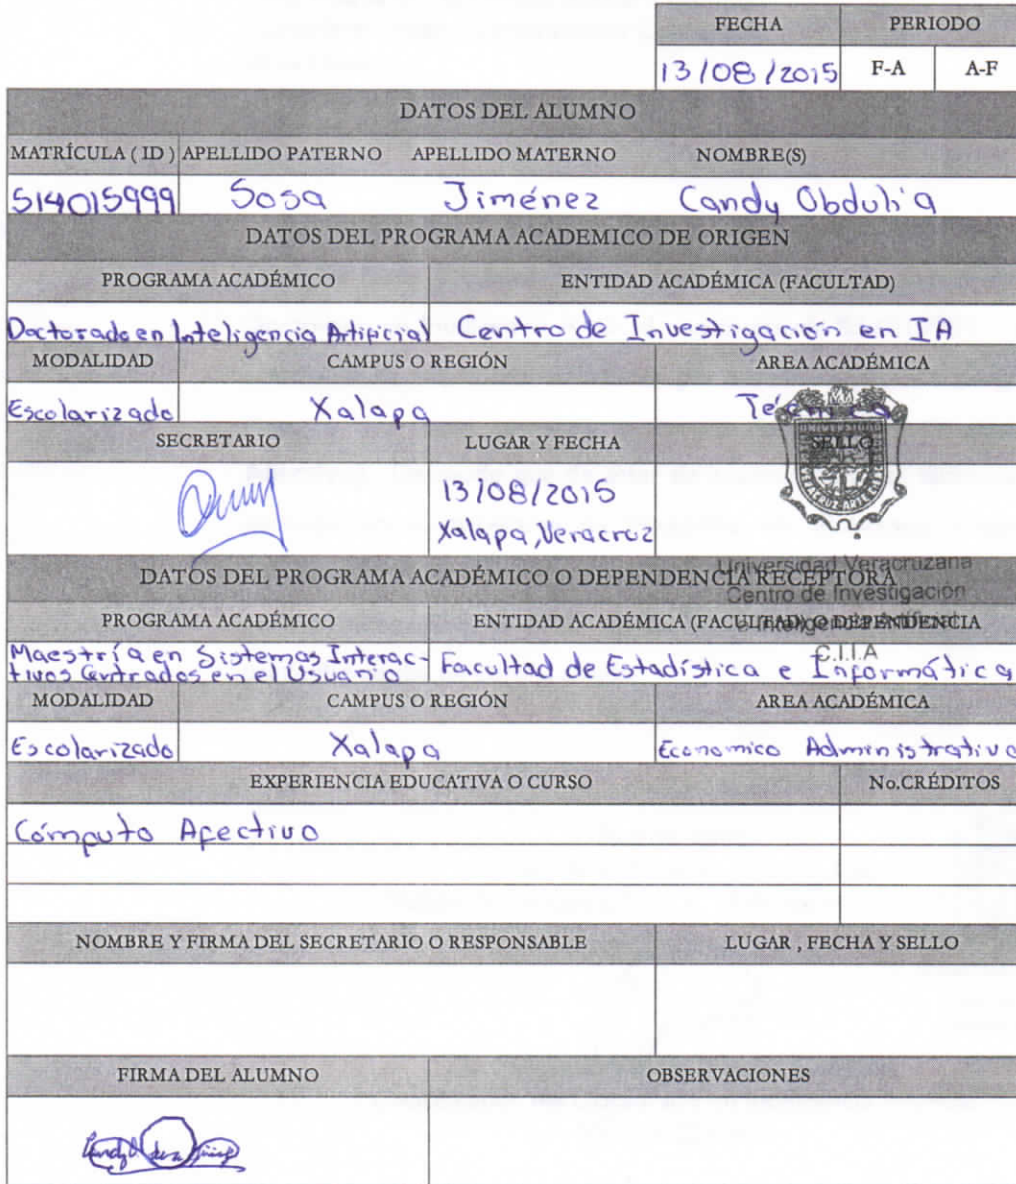 FECHA PERIODO
13/08/2015 F-A A-F
DATOS DEL ALUMNO
MATRÍCULA ( ID ) APELLIDO PATERNO APELLIDO MATERNO NOMBRE(S)
S14015999 Sosa Jiménez Candy Obdulia
DATOS DEL PROGRAMA ACADEMICO DE ORIGEN
PROGRAMA ACADÉMICO ENTIDAD ACADÉMICA (FACULTAD)
Doctorado en Inteligencia Artificial Centro de Investigación en IA
MODALIDAD CAMPUS O REGIÓN AREA ACADÉMICA
Escolarizado Xalapa Técnica
SECRETARIO LUGAR Y FECHA SELLO
13/08/2015
Xalapa, Veracruz
Universidad Veracruzana
DATOS DEL PROGRAMA ACADÉMICO O DEPENDENCIA RECEPTORA
Centro de Investigación
PROGRAMA ACADÉMICO ENTIDAD ACADÉMICA (FACULTAD) O DEPENDENCIA
C.I.I.A
Maestría en Sistemas Interac-
tivos Centrados en el Usuario Facultad de Estadística e Informática
MODALIDAD CAMPUS O REGIÓN AREA ACADÉMICA
Escolarizado Xalapa Economico Administrativo
EXPERIENCIA EDUCATIVA O CURSO No.CRÉDITOS
Cómputo Afectivo
NOMBRE Y FIRMA DEL SECRETARIO O RESPONSABLE LUGAR , FECHA Y SELLO
FIRMA DEL ALUMNO OBSERVACIONES